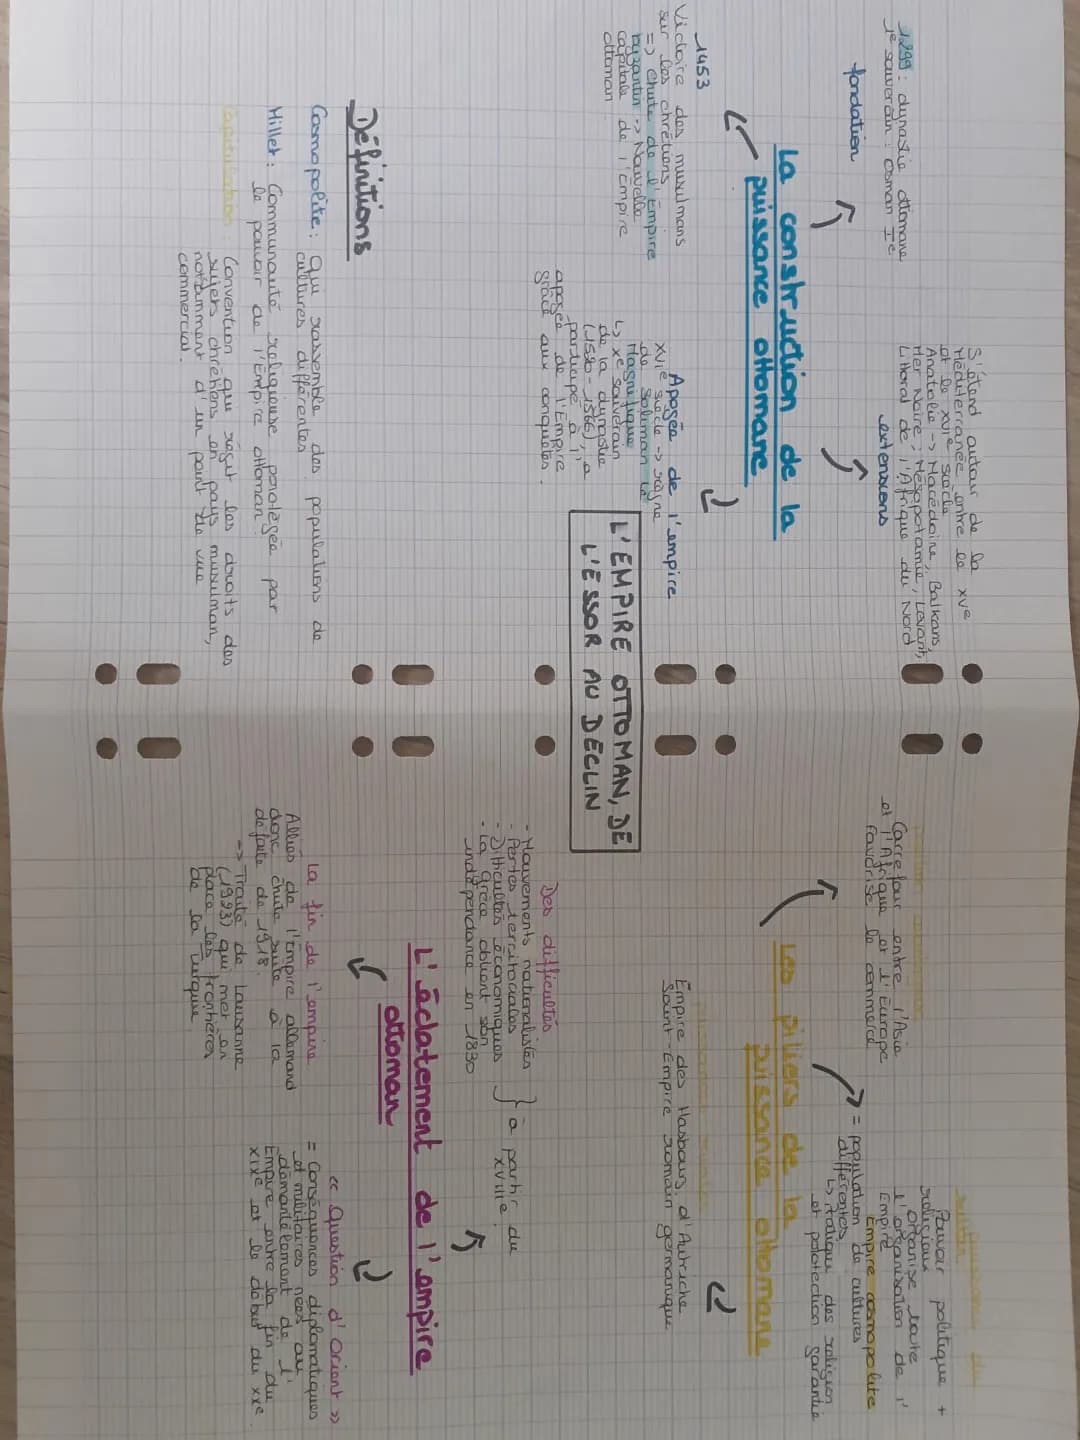 L'EMPIRE OTTOMAN, DE
L'ESSOR AU DECLIN
La construction de la
puissance ottomane
fondation
1299 : dynastie ottomane
1e souverain : Osman Ie
extensions
S'étend autour de la
Méditerranée entre le XVe
et le XVIe siècle
Anatolie -> Macédoine, Balkans,
Mer Noire, Mésopotamie, Levant,
Littoral de l'Afrique du Nord
1453
Victoire des musulmans
sur les chrétiens
=> chute de l'Empire
byzantin -> Nouvelle
capitale de l'Empire
ottoman
Apogée de l'empire
XVIe siècle -> règne
de Soliman le
Magnifique
↳ Xe souverain
de la dynastie
(1520-1566), a
participé à l'
apogée de l'Empire
grâce aux conquêtes.
Définitions
Cosmopolite : qui rassemble des populations de
cultures différentes
Millet : Communauté religieuse protégée par
le pouvoir de l'Empire ottoman
Capitulation : Convention qui régit les droits des
sujets chrétiens en pays musulman,
notamment d'un point de vue
commercial.
Les piliers de la
puissance ottomane
Carrefour entre l'Asie
et l'Afrique et l'Europe
Favorise le commerce
Pouvoir politique +
religieux
Organise toute
l'organisation de l'
Empire
Empire cosmopolite
= population de cultures
différentes
↳ Pratique des religion
et protection garantie
Empire des Hasbourg d'Autriche
Saint-Empire romain germanique
L'éclatement de l'empire
ottoman
Des difficultés
- Mouvements nationalistes
- Pertes territoriales
- Difficultés économiques
- La Grèce obtient son
indépendance en 1830
} à partir du
XVIIIe
La fin de l'empire
Alliés de l'Empire allemand
donc chute suite à la
defaite de 1918.
-> Traité de Lausanne
(1923) qui met en
place les frontières
de la Turquie
« Question d'Orient »
= Conséquences diplomatiques
et militaires nées au
démantèlement de l'
Empire entre la fin du
XIXe et le début du XXe